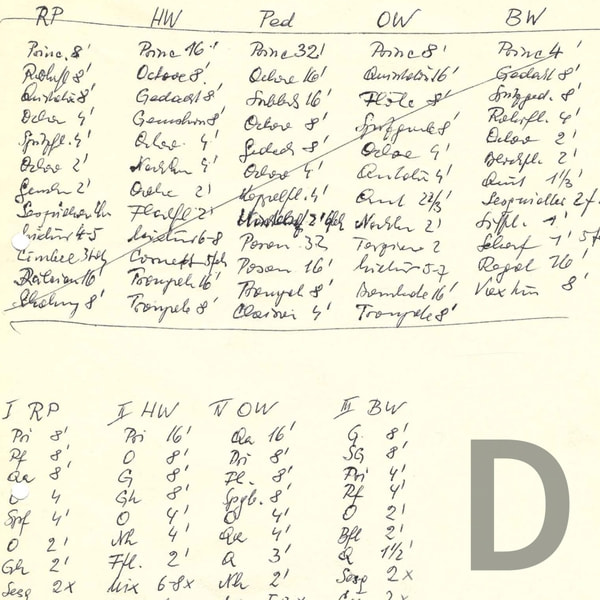 RP HW Ped OW BW
Princ. 8' Princ 16' Princ 32' Princ 8' Princ 4'
Rohrfl 8' Octave 8' Octave 16' Quintatön 16' Gedackt 8'
Quintatön 8' Gedackt 8' Subbaß 16' Flöte 8' Spitzged. 8'
Octav 4' Gemshorn 8' Octave 8' 8' Rohrfl. 4'
Spitzfl. 4' Octav 4' Gedack 8' Octave 4' Octave 2'
Octav 2' Nachthn 4' Octave 4' Quintatön 4' Blockfl. 2'
Gemsh 2' Octave 2' Koppelfl. 4' Quint 2 2/3' Quint 1 1/3'
Flachfl 2' Nachthn 2' Sesquialter 2f.
Mixtur 4-5 Mixtur 6-8 Posaun 32 2 Siffl. 1'
Cimbel 3fch Cornett 5fch Posaun 16' Mixtur 5-7 Scharf 1'
16' Trompete 16' Trompete 8' 16' Regal 16'
8' Trompete 8' Clairon 4' Trompete 8' Vox hum 8'
I RP II HW IV OW III BW
Pri 8' Pri 16' Qu 16' G 8'
Rf 8' O 8' Pri 8' SG 8'
Qu 8' G 8' Fl. 8' Pri 4'
4 Gh 8' Spgb. 8' Rf 4'
Spf 4' O 4' O 4' O 2'
O 2' Nh 4' Qu 4' Bfl 2'
Gh 2' Ffl. 2' Q 3' Q 1 1/2'
Sesq 2x Mix 6-8x Nh 2' Sesq 2x
D